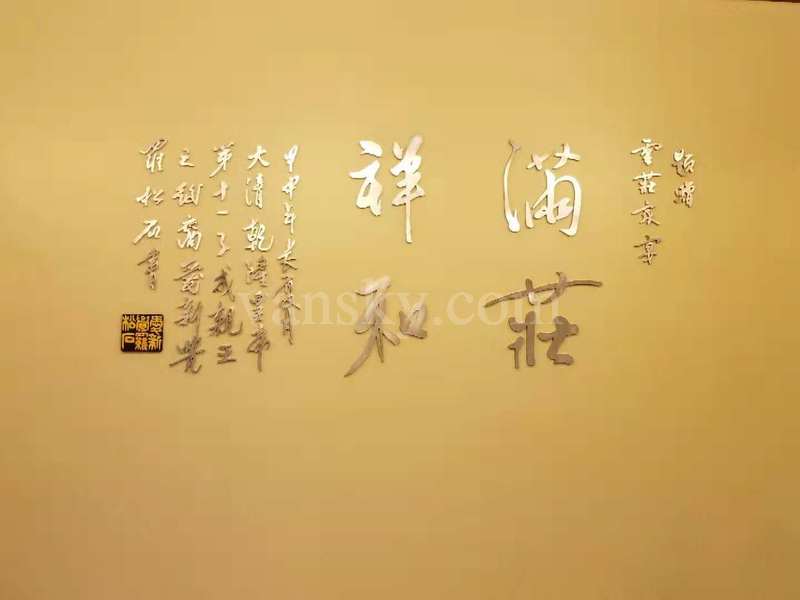 題贈
雲莊京宴
滿莊
祥和
甲申年長夏月
大清乾隆皇帝
第十一子成親王
之裔愛新覺
羅松石書
愛新
覺羅
松石
vansky.com